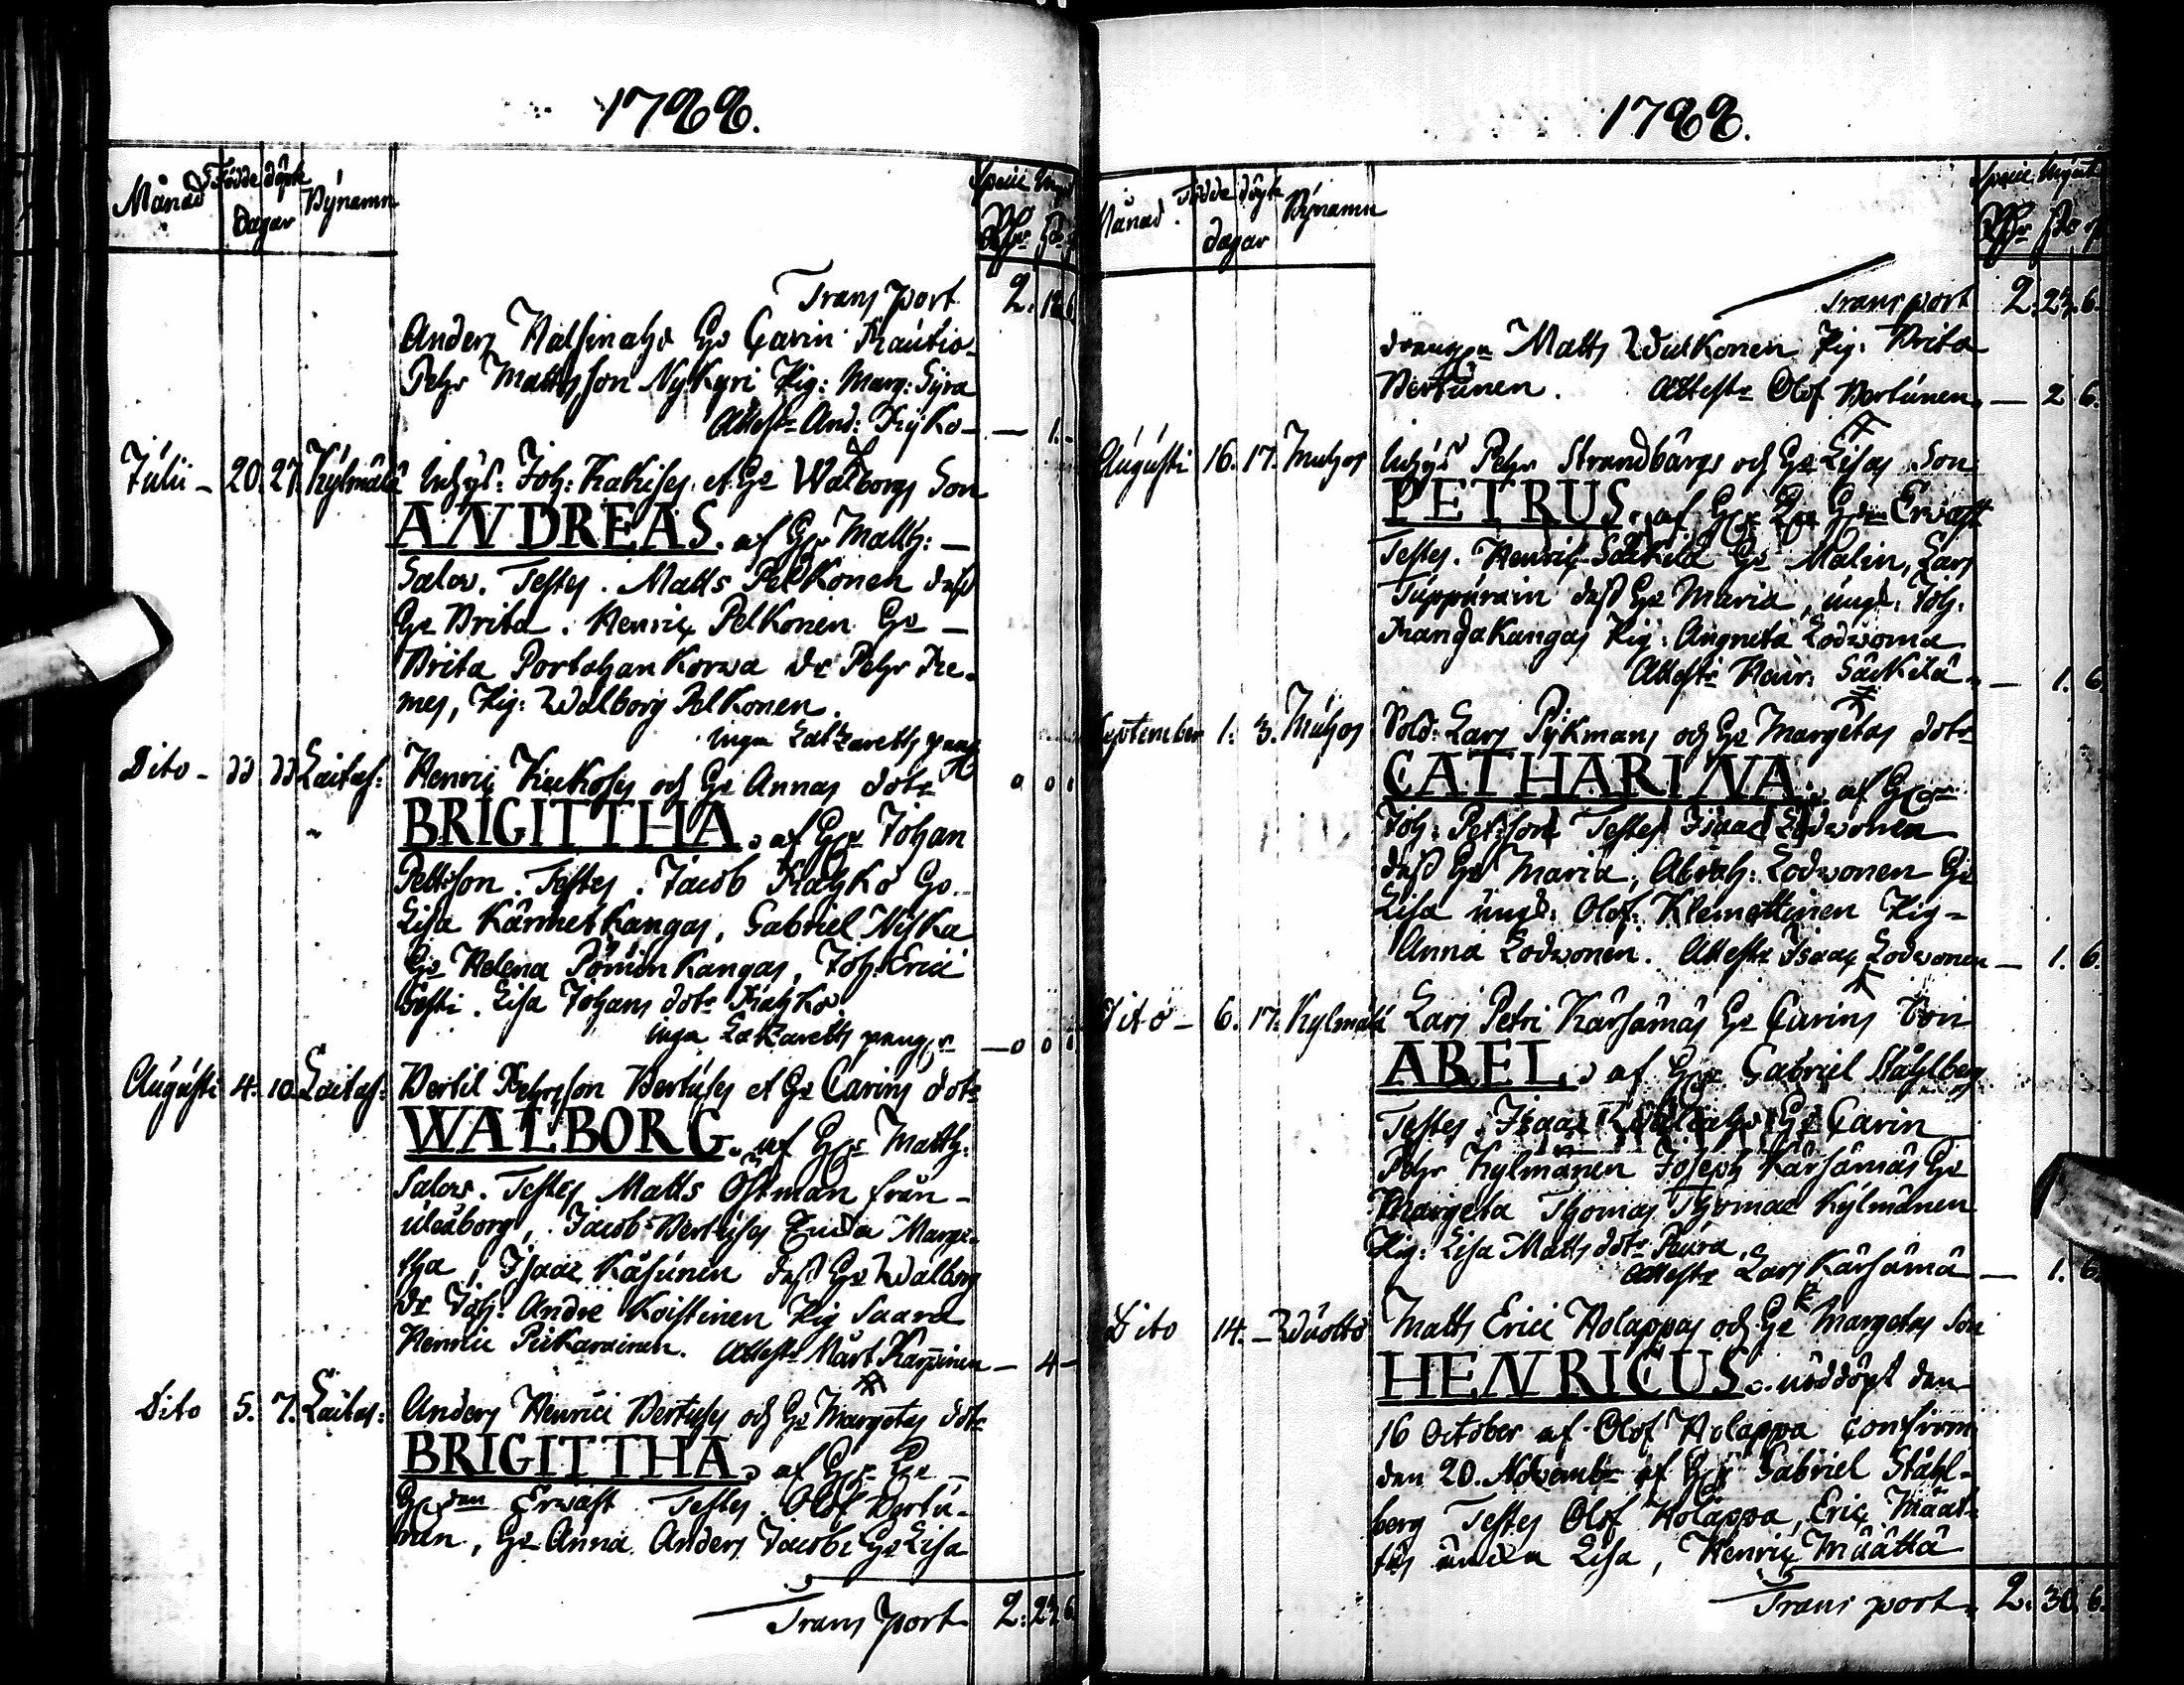 1788.
Månad Födde döpte Bynamn
Dagar
Transport 2. 18. 6.
Anders Halsinaho Ho Carin Rautio
Pehr Mattsson Nykyri Pig: Marg: Syra
Attest. And: — 1. -
Julii - 20. 27. Kylmälä Inhys: Joh: Kakises et Ho Walborgs Son
ANDREAS. af Hr Matth: —
Salov. Testes. Matts Pelkonen dess
Ho Brita. Henric Pelkonen Ho —
Brita Portahankorwa dr Pehr Re-
mes, Pig: Walborg Pelkonen.
inga Latzaretts peng
Dito - dd dd Laitas: Henric Kukoses och Ho Annas dotr 0 0
BRIGITTHA. af Hr Johan
Pettsson. Testes. Jacob Ho
Lisa Kärmetkangas, Gabriel Niska
Ho Helena Pöninkangas, Joh: Erici
Lisa Johans dotr
inga Latzaretts pengar — 0 0
Augusti 4. 10. Laitas: Bertil Pehrsson Bertuses et Ho Carins dotr
WALBORG. af Hr Matth:
Salov. Testes Matts Östman från -
uleåborg, Jacob Bertuses Enka Marge-
tha, Isaac Käsünen dess Ho Walborg
dr Joh: Andre Koistinen Pig Saara
Henric Pickarainen. Attest. Mårt Karpinen — 4 -
Dito 5. 7. Laitas: Anders Henrici Bertuses och Ho Margetas dotr
BRIGITTHA. af Hr
Erwast Testes. Olof Bertu-
nen, Ho Anna Anders Jacobi Ho Lisa
Transport 2. 23. 6.
1788.
Månad. Födde döpte Bynamn
dagar
Transport 2. 23. 6.
drängen Matts Wulkonen Pig: Brita
Bertunen. Attest. Olof Bertunen. — 2 6.
Augusti 16. 17. Muhos Inhys Pehr Strandbärgs och Ho Lisas Son
PETRUS. af Hr Erwast
Testes. Henric Säckilä Ho Malin, Lars
Tuppurain dess Ho Maria, ungk: Joh:
Kangakangas Pig: Angneta Lodwonia
Attest. Henr: Säckilä. — 1. 6.
September 1. 3. Muhos Sold: Lars Pykmans och Ho Margetas dotr
CATHARINA. af
Joh: Petsson Testes Isaac Lodwonen
dess Ho Maria, Abrah: Lodwonen Ho
Lisa ungk: Olof: Klemettinen Pig -
Anna Lodwonen. Attest. Isaac Lodwonen — 1. 6.
Dito - 6. 17. Kylmälä Lars Petri Kärsämäs Ho Carins Son
ABEL. af Hr Gabriel Ståhlberg
Testes. Isaac Ho Carin
Pehr Kylmänen Joseph Kärsämäs Ho
Margeta Thomas Thomae Kylmänen
Pig: Lisa Matts dotr Paura.
Attest. Lars Kärsämä — 1. 6.
Dito 14. - Wuotto Matts Erici Holappas och Ho Margetas Son
HENRICUS. nöddöpt den
16 October af Olof Holappa confirm
den 20. Novembr af Hr Gabriel Ståhl-
berg Testes Olof Holappa, Eric Määt-
täs Lisa, Henric Määttä
Transport. 2. 30. 6.